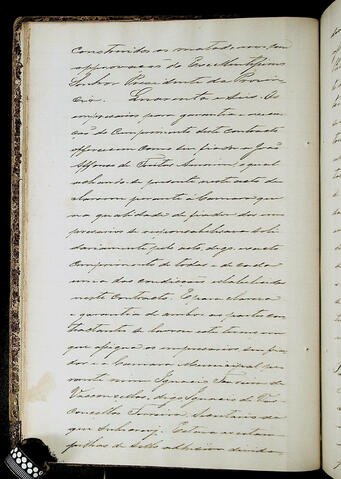 construidos os matadouros, com
approvação do Excellentissimo
Senhor Presidente da Provin-
cia. Quarenta e seis. Os
empresarios para garantir a execu-
ção do Comprimento deste Contracto
offerecem como seu fiador a João
Affonso de Freitas Amorim, o qual
achando-se presente neste acto de-
clarou perante a Camara que
na qualidade de fiador dos em-
presarios se responsabilisava soli-
dariamente pelo acto, digo, exacto
Comprimento de todas e de cada
uma das condicções estabelecidas
neste Contracto. E para clareza
e garantia de ambas as partes con-
tractantes se lavrou este termo em
que assignão os empresarios seu fia-
dor e a Camara Municipal pe-
rante mim Ignacio
Vasconcellos, digo Ignacio de Vas-
concellos Ferreira, Secretario da
que subscrevy. Estava estam-
pilhas de sello adhesivo devida-